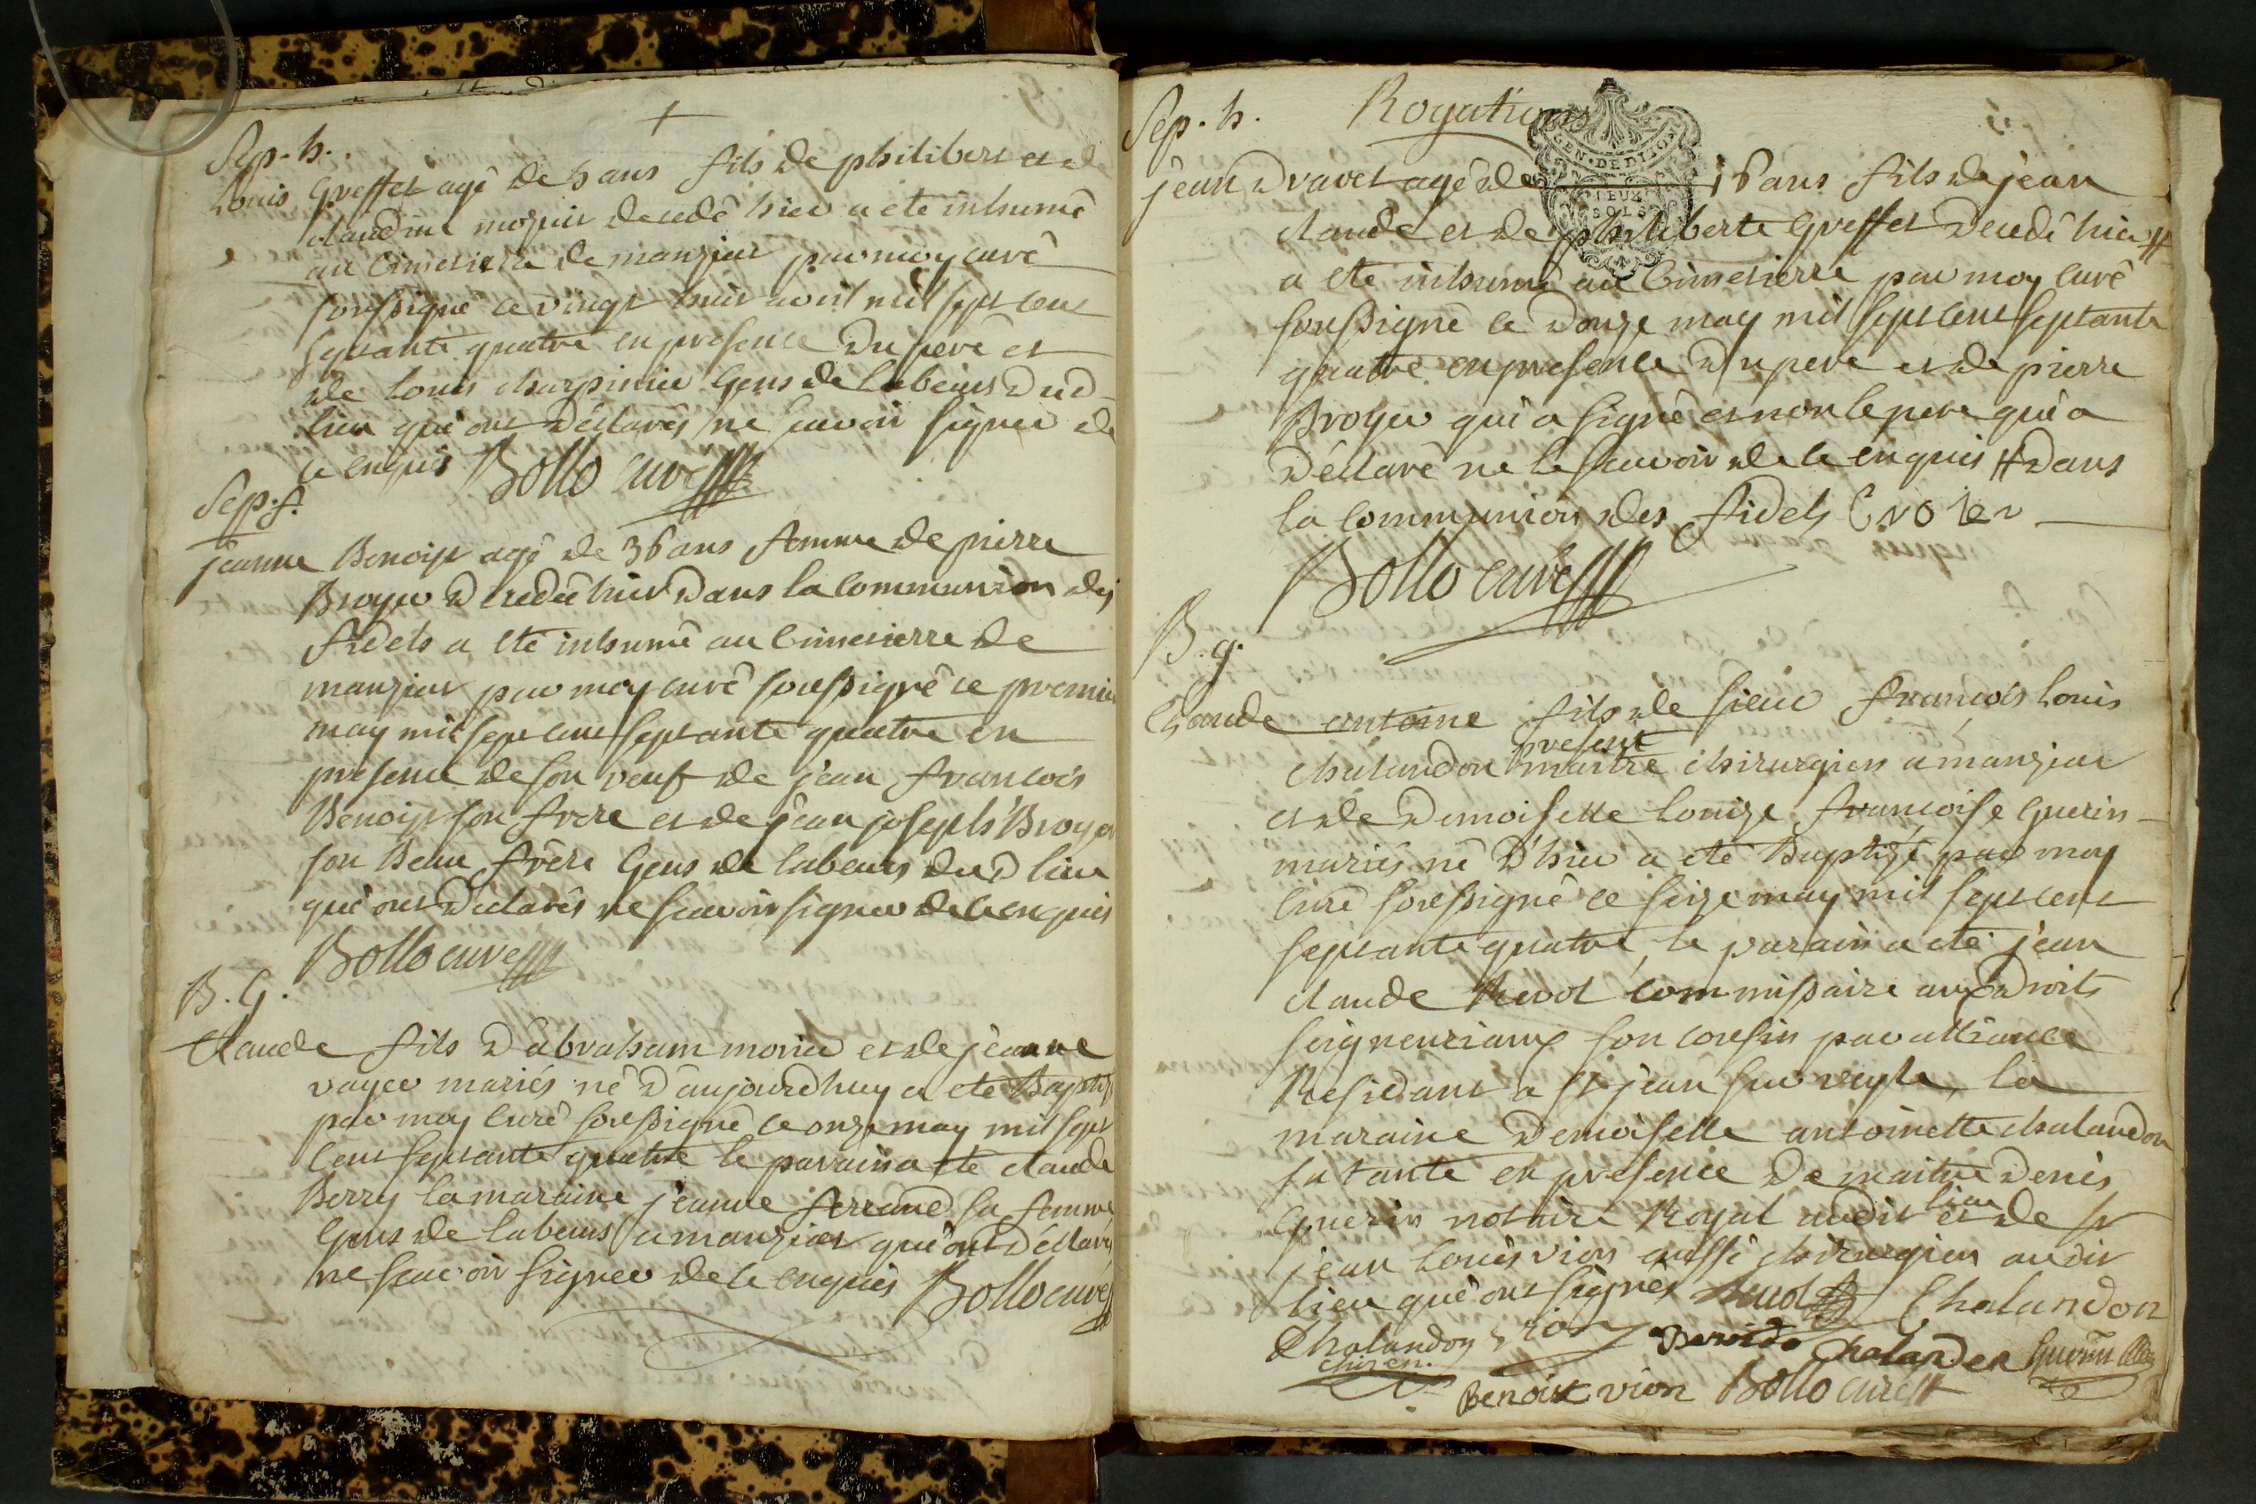 Sep. h.
Louis Greffet agé de 5 ans fils de philibert et de
claudine mozuir decedé hier a eté inhumé
au Cimetierre de manziat par moy curé
soussigné ce vingt huit avril mil sept cent
septante quatre en presence du pere et
de louis charpinier Gens de labeurs dud
lieu qui ont declarés ne scavoir signer de
ce enquis Bollo curé
Sep. f.
jeanne Benoist agé de 36 ans femme de pierre
Broyer decedée hier dans la Communion des
fidels a eté inhumé au Cimetierre de
manziat par moy curé soussigné ce premier
may mil sept cent septante quatre en
presence de son veuf de jean francois
Benoist son frere et de jean joseph Broyer
son Beau frère Gens de labeurs dud lieu
qui ont declarés ne scavoir signer de ce enquis
Bollo curé
B. G.
Claude fils d'abraham morier et de jeanne
voyer mariés né d'aujourdhuy a eté Baptisé
par moy Curé soussigné ce onze may mil sept
Cent septante quatre le parain a eté claude
Berry la maraine jeanne ferrand sa femme
Gens de labeurs a manziat qui ont déclarés
ne scavoir signer de ce enquis Bollo curé
Sep. h. Rogations
GEN. DE DIJON
DEUX SOLS
jean dravet agé de 16 ans fils de jean
claude et de philiberte Greffet decedé hier #
a eté inhumé au Cimetierre par moy curé
soussigné ce douze may mil sept cent septante
quatre en presence du pere et de pierre
Broyer qui a signé et non le pere qui a
déclaré ne le scavoir de ce enquis # dans
la Communion des fidels Broier
Bollo curé
B. g.
Claude antoine fils de sieur francois louis
chalandon present maitre chirurgien a manziat
et de Demoiselle louize francoise Guerin
mariés né d'hier a eté Baptizé par moy
Curé soussigné ce seize may mil sept cent
septante quatre, le parain a eté jean
claude Revol commissaire aux droits
seigneuriaux son cousin par alliance
Residant a st jean sur veyle, la
maraine Demoiselle antoinette chalandon
sa tante en presence de maitre denis
Guerin notaire Royal audit lieu et de sr
jean louis vion aussi chirurgien audit
lieu qui ont signés Revol Chalandon
Chalandon vion Benoist Chalanden Guerin
chiren.
Benoist vion Bollo curé